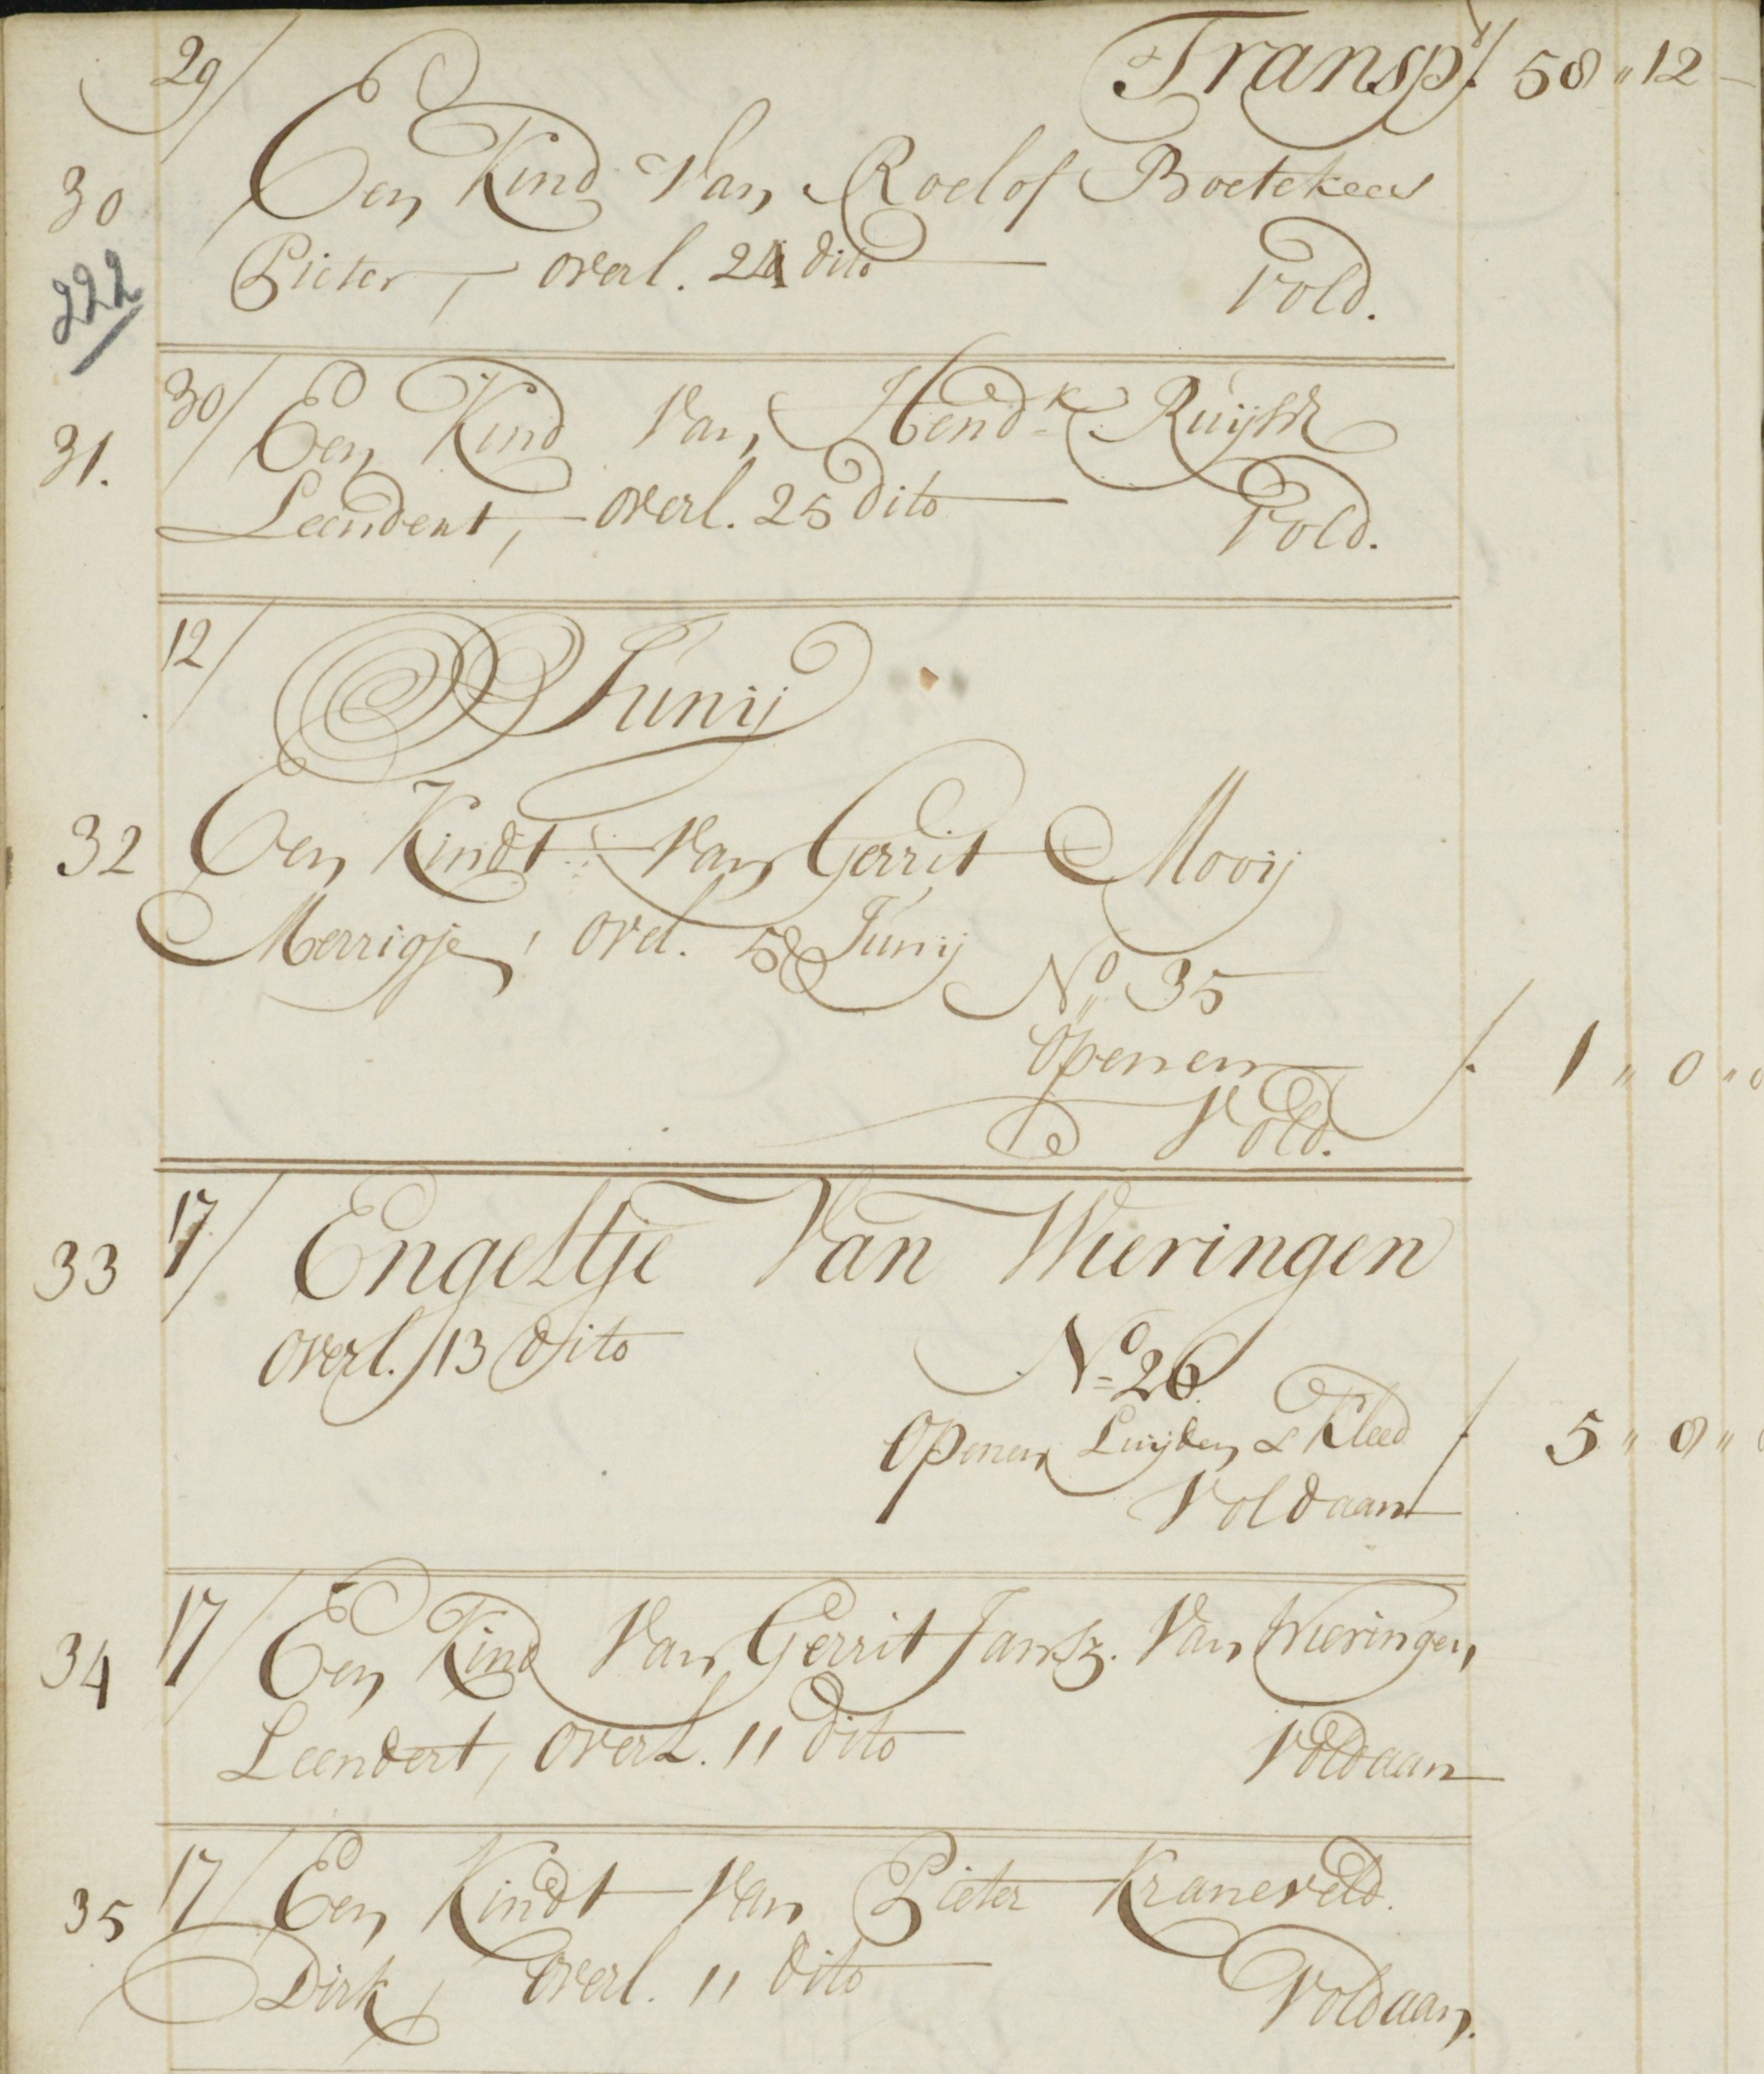 29/ Transpt. ƒ 58 " 12 —
30 Een Kind Van Roelof Boetekees
222 Pieter, overl. 24 dito — Vold.
31. 30/ Een Kind Van Hendk. Ruijsch
Leendert, overl. 25 dito — Vold.
12/ Junij
32 Een Kindt Van Gerrit Mooij
Merrigje, overl. 8 Junij
No. 35
Openen ƒ 1 " 0 " 0
Vold.
33 17/ Engeltje Van Wieringen
overl. 13 dito No. 26
Openen Luijden & Kleed ƒ 5 " 0 " 0
Voldaan
34 17/ Een Kind Van Gerrit Jansz. Van Wieringen
Leendert, overl. 11 dito Voldaan
35 17/ Een Kindt Van Pieter Kraneveld.
Dirk, overl. 11 dito — Voldaan.